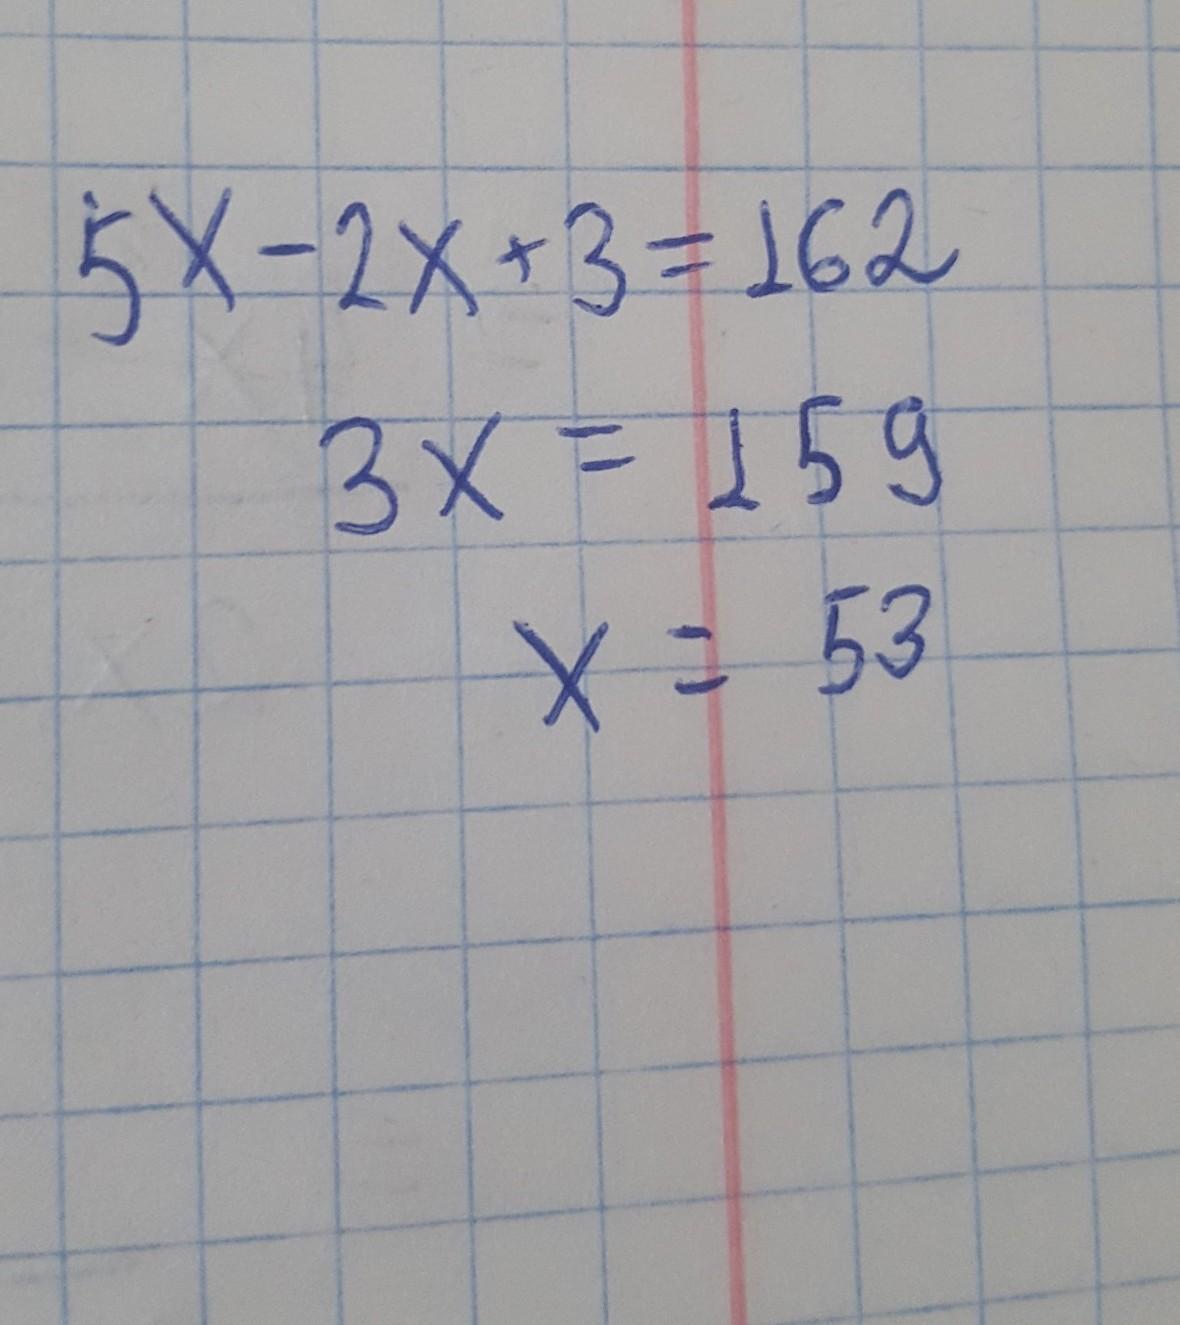 5x-2x+3=162
3x = 159
x = 53